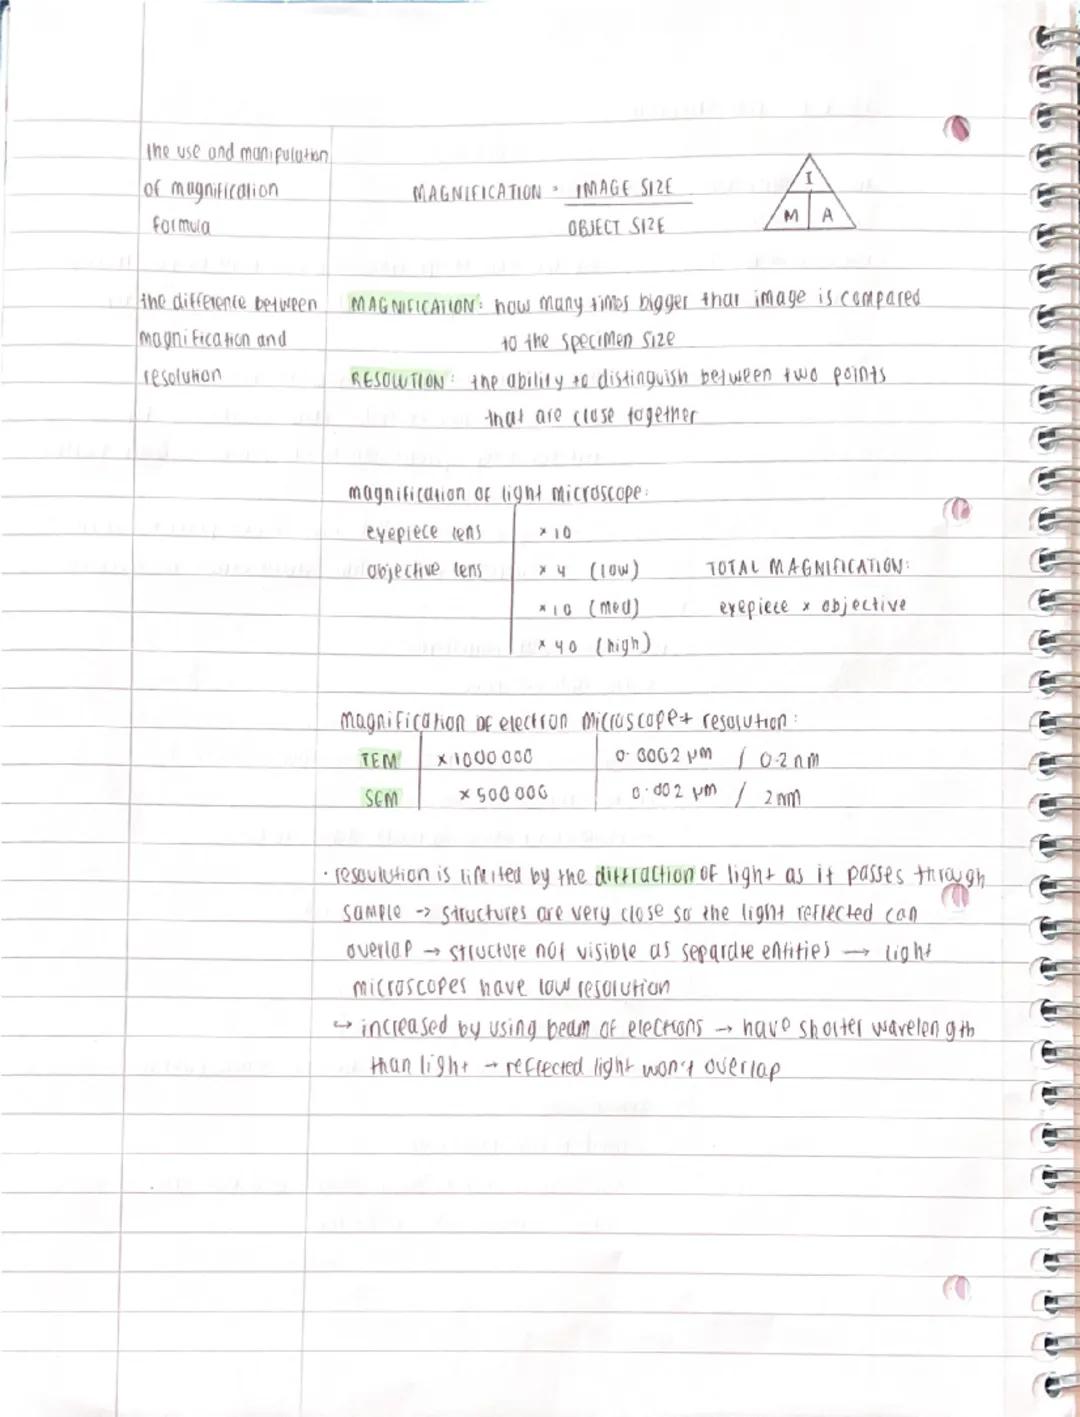 the use and manipulation
of magnification
formula
MAGNIFICATION = IMAGE SIZE
OBJECT SIZE
I
M A
the difference between
magnification and
resolution
MAGNIFICATION: how many times bigger thar image is compared
to the specimen size
RESOLUTION: the ability to distinguish between two points
that are close together
magnification of light microscope:
eyepiece lens × 10
objective lens × 4 (low)
× 10 (med)
× 40 (high)
TOTAL MAGNIFICATION:
eyepiece × objective
magnification of electron microscope + resolution:
TEM × 1000 000 0.0002 µm / 0.2 nm
SEM × 500 000 0.002 µm / 2 nm
· resoulution is limited by the diffraction of light as it passes through
sample -> structures are very close so the light reflected can
overlap → structure not visible as separate entities → light
microscopes have low resolution
↪ increased by using beam of electrons → have shorter wavelength
than light → reflected light won't overlap